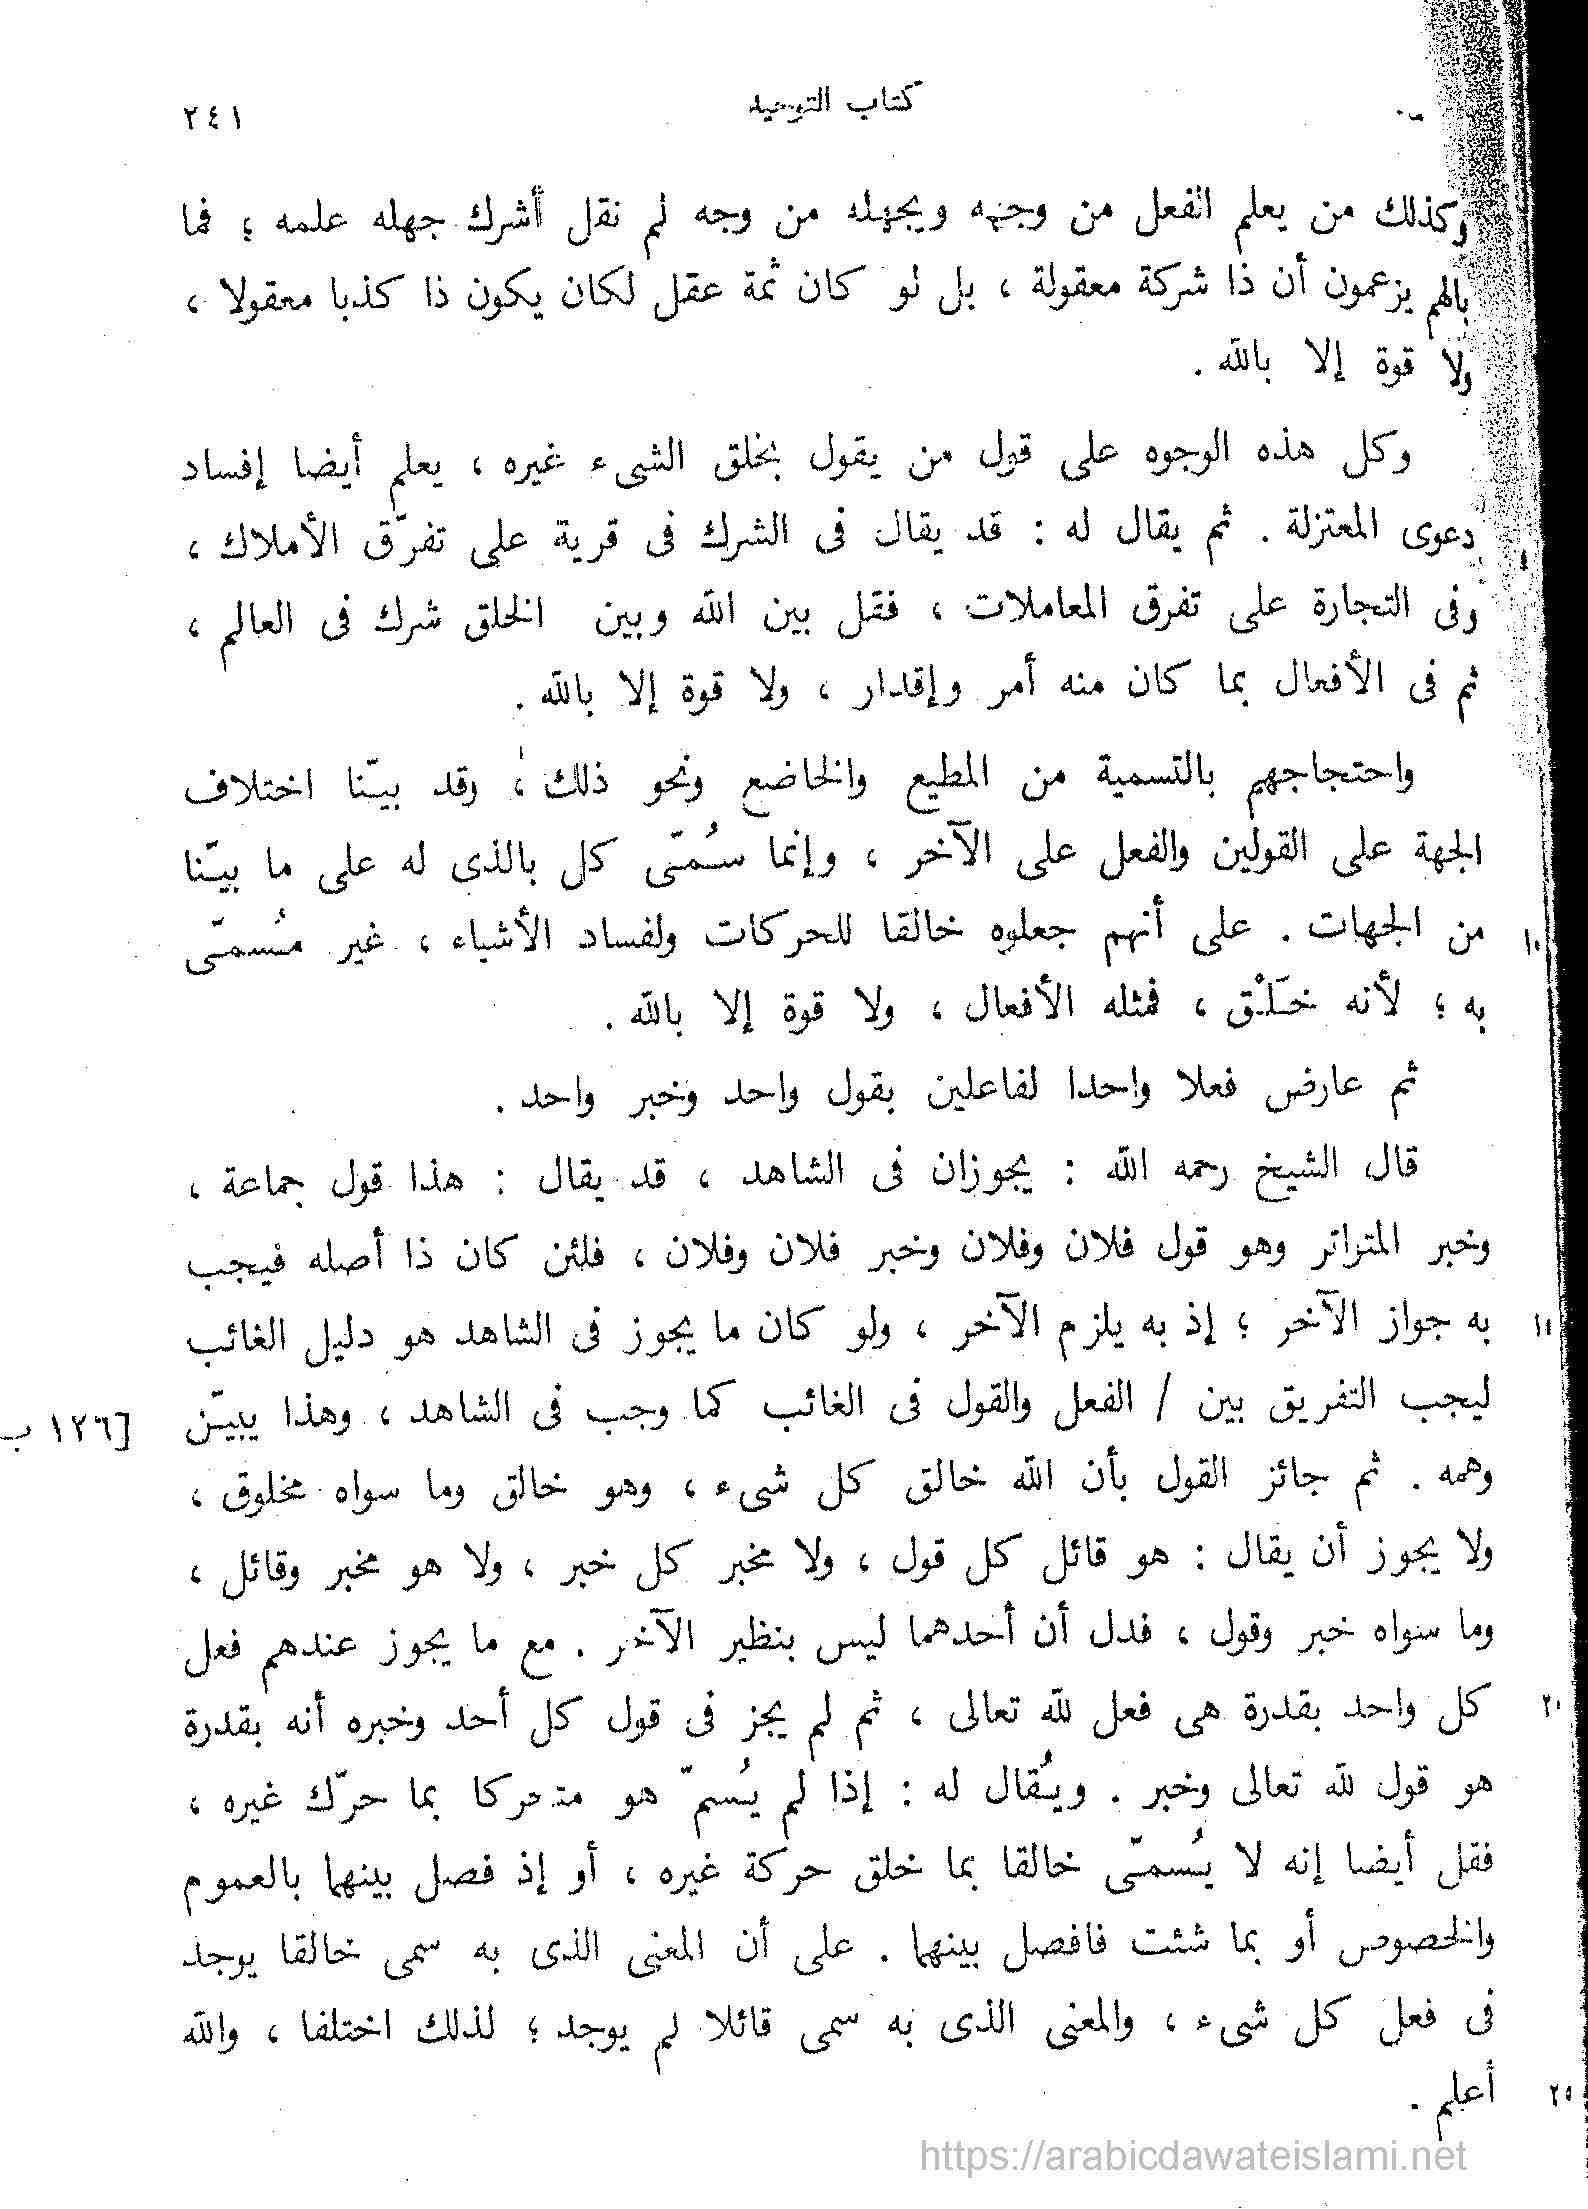 كتاب التوحيد ٢٤١
وكذلك من يعلم الفعل من وجه ويجهله من وجه لم نقل أشرك جهله علمه ؛ فما
بالهم يزعمون أن ذا شركة معقولة ، بل لو كان ثمة عقل لكان يكون ذا كذبا معقولا ،
ولا قوة إلا بالله .
وكل هذه الوجوه على قول من يقول بخلق الشىء غيره ، يعلم أيضا إفساد
دعوى المعتزلة . ثم يقال له : قد يقال فى الشرك فى قرية على تفرّق الأملاك ،
وفى التجارة على تفرق المعاملات ، فقل بين الله وبين الخلق شرك فى العالم ،
ثم فى الأفعال بما كان منه أمر وإقدار ، ولا قوة إلا بالله .
واحتجاجهم بالتسمية من المطيع والخاضع ونحو ذلك ، وقد بيّنا اختلاف
الجهة على القولين والفعل على الآخر ، وإنما سُمّى كل بالذى له على ما بيّنا
من الجهات . على أنهم جعلوه خالقا للحركات ولفساد الأشياء ، غير مُسمّى ١٠
به ؛ لأنه خَلْق ، فمثله الأفعال ، ولا قوة إلا بالله .
ثم عارض فعلا واحدا لفاعلين بقول واحد وخبر واحد .
قال الشيخ رحمه الله : يجوزان فى الشاهد ، قد يقال : هذا قول جماعة ،
وخبر المتواتر وهو قول فلان وفلان وخبر فلان وفلان ، فلئن كان ذا أصله فيجب
به جواز الآخر ؛ إذ به يلزم الآخر ، ولو كان ما يجوز فى الشاهد هو دليل الغائب
ليجب التفريق بين / الفعل والقول فى الغائب كما وجب فى الشاهد ، وهذا يبيّن [١٢٦ ب
وهمه . ثم جائز القول بأن الله خالق كل شىء ، وهو خالق وما سواه مخلوق ،
ولا يجوز أن يقال : هو قائل كل قول ، ولا مخبر كل خبر ، ولا هو مخبر وقائل ،
وما سواه خبر وقول ، فدل أن أحدهما ليس بنظير الآخر . مع ما يجوز عندهم فعل
كل واحد بقدرة هى فعل لله تعالى ، ثم لم يجز فى قول كل أحد وخبره أنه بقدرة ٢٠
هو قول لله تعالى وخبر . ويُقال له : إذا لم يُسمّ هو متحركا بما حرّك غيره ،
فقل أيضا إنه لا يُسمّى خالقا بما خلق حركة غيره ، أو إذ فصل بينهما بالعموم
والخصوص أو بما شئت فافصل بينهما . على أن المعنى الذى به سمى خالقا يوجد
فى فعل كل شىء ، والمعنى الذى به سمى قائلا لم يوجد ؛ لذلك اختلفا ، والله
أعلم . ٢٥
https://arabicdawateislami.net